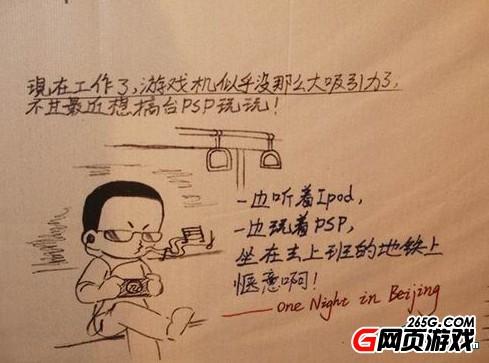 現在工作了,游戏机似乎没那么大吸引力了,
不过最近想搞台PSP玩玩!
一边听着Ipod,
一边玩着PSP,
坐在去上班的地铁上
惬意啊!
——One Night in Beijing
265G.COM
G网页游戏